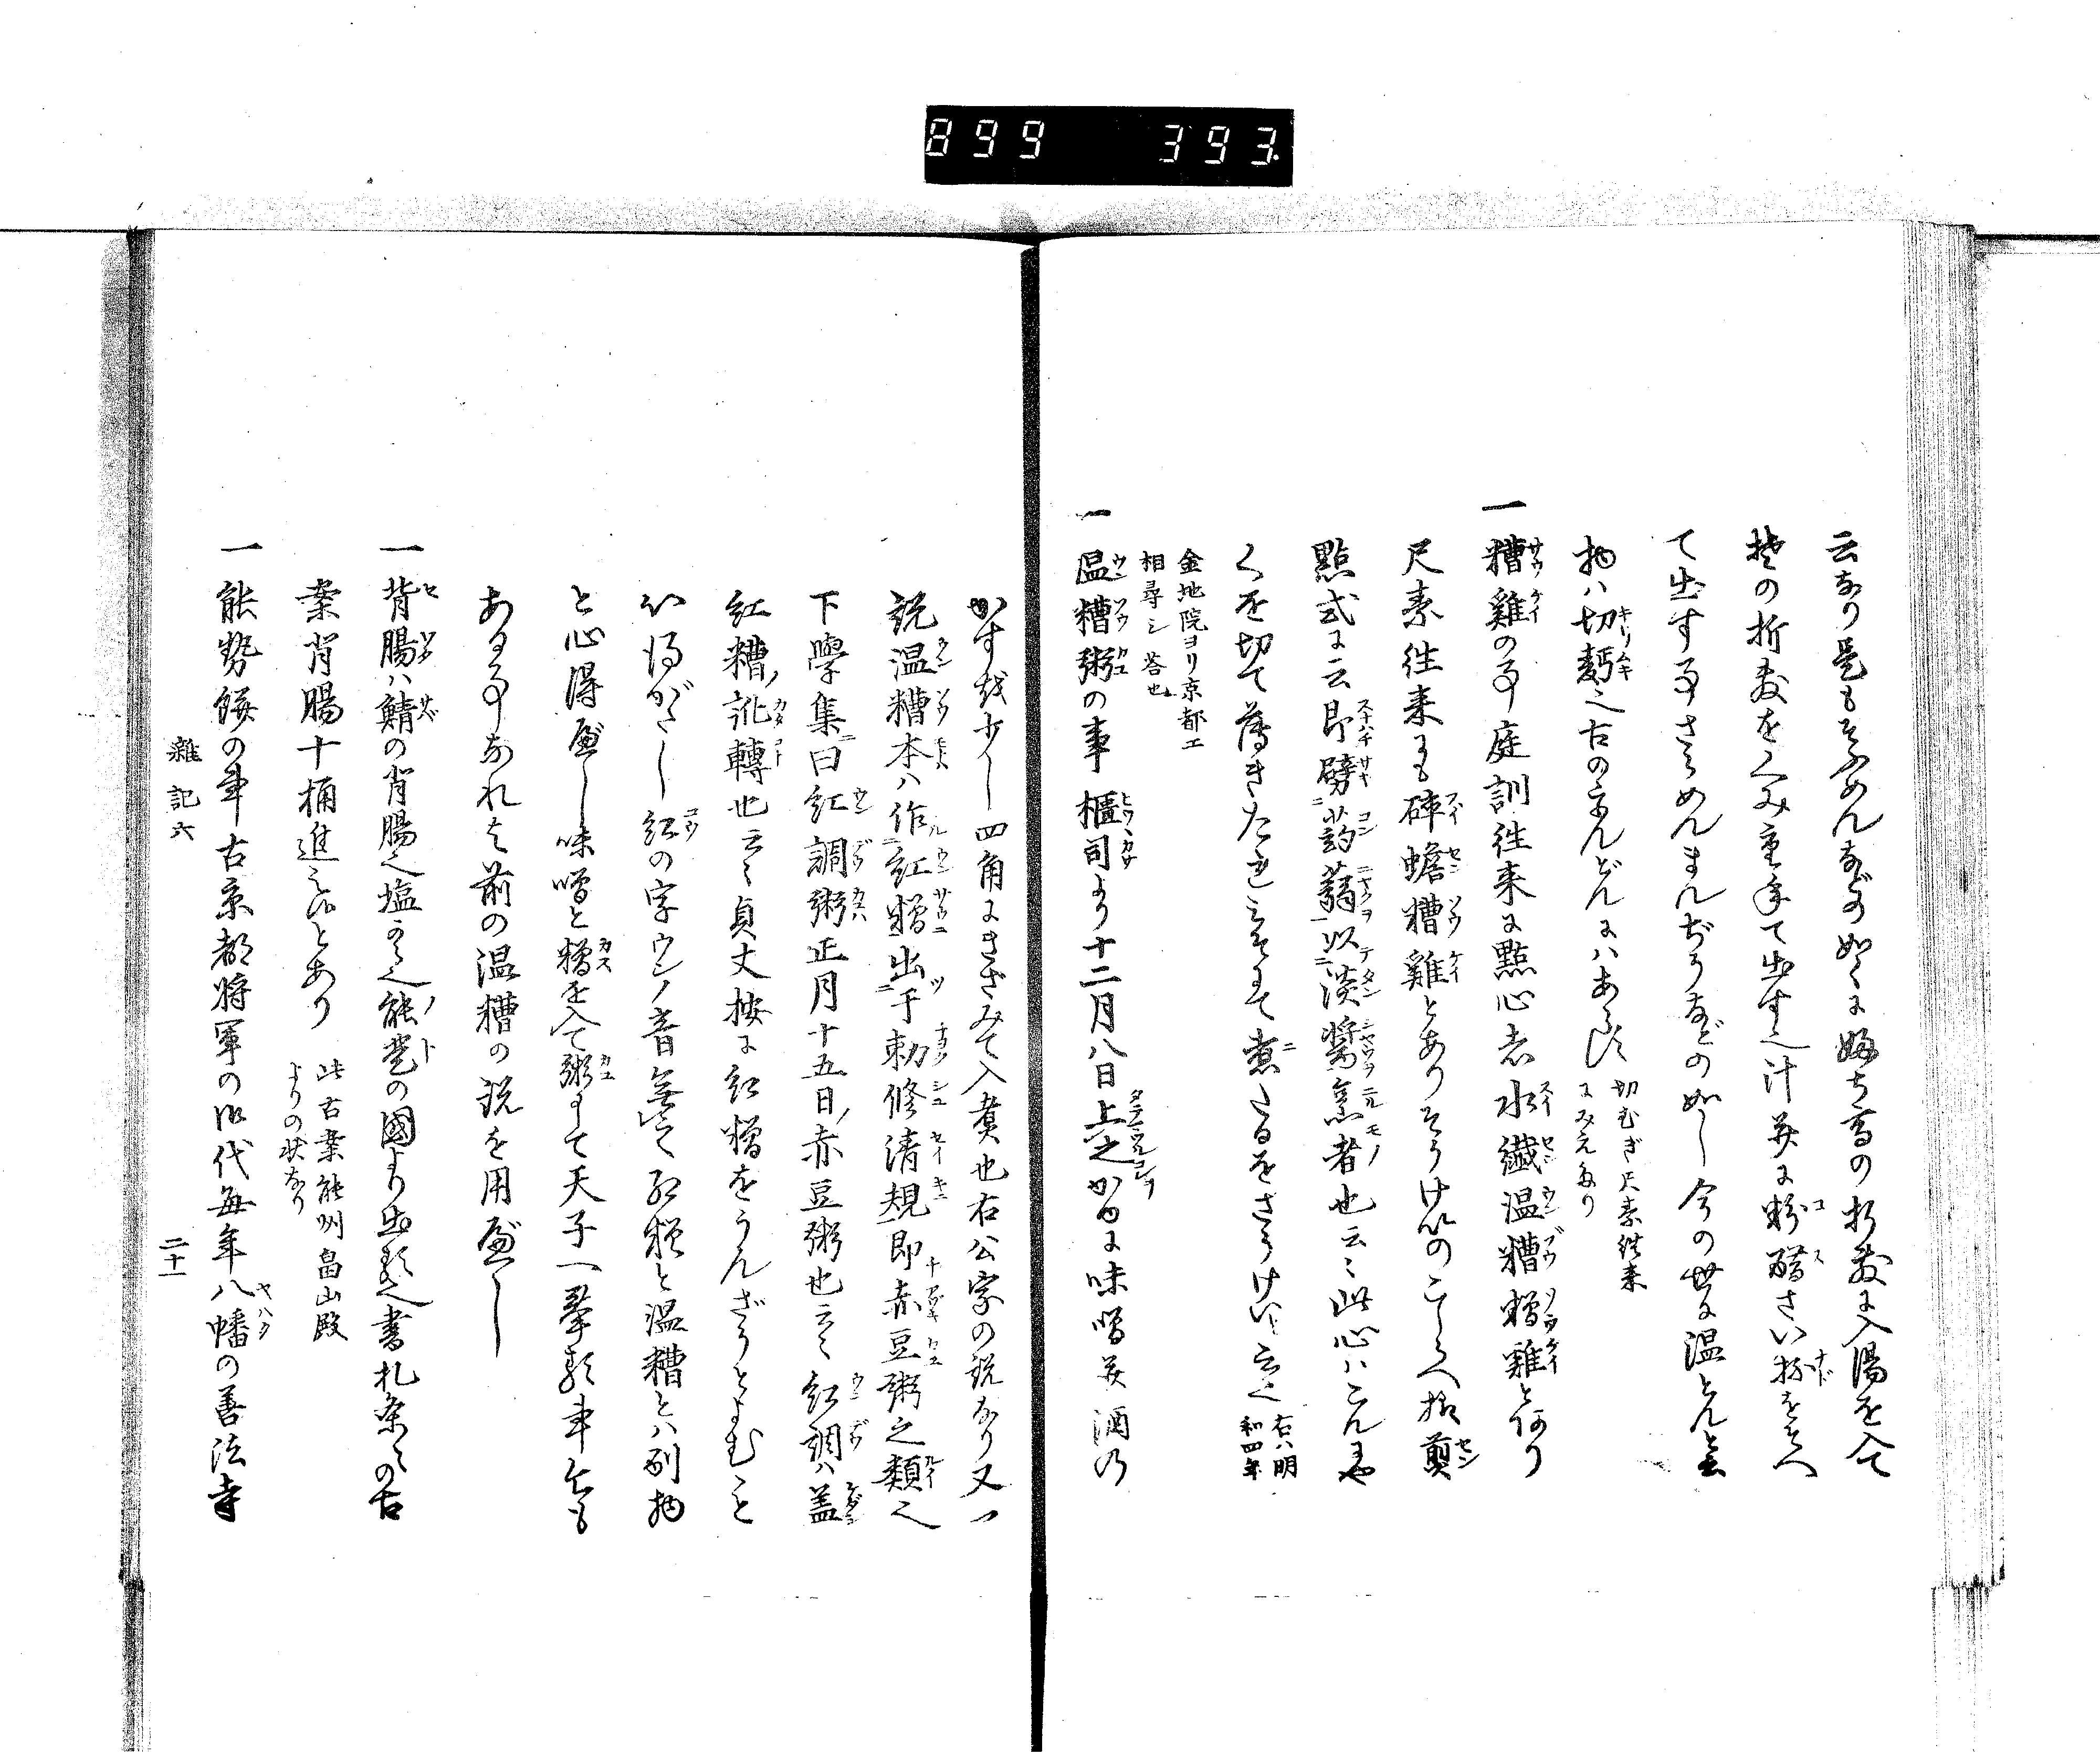 899 393
云なり是もそふめんなどの如くにふち高の折敷に入湯を入て
其の折敷をくみ重ねて出す也汁并に粉醋さい抔をそへ
て出す事さうめんまんぢうなどの如し今の世に温とんと云
物ハ切麪也古のうんどんにハあらず 切むぎ尺素往来
にみえたり
一糟雞の事庭訓往来に點心者水纎温糟糟雞とあり
尺素往来にも砕蟾糟雞とありそうけいのこしらへ様剪
點式に云即劈蒟蒻以淡醬烹者也云々此心ハこんにや
くを切て薄きたれみそにて煮たるをさうけいと云也 右ハ明
和四年
金地院ヨリ京都エ
相尋シ荅也
一温糟粥の事 櫃司より十二月八日上之かゆに味噌并酒の
かすを少し四角にきざみて入煮也右公家の説なり又一
説温糟本ハ作紅糟出于勅修清規即赤豆粥之類也
下學集曰紅調粥正月十五日ノ赤豆粥也云々紅調ハ蓋
紅糟ノ訛轉也云々貞丈按に紅糟をうんざうとよむこと
心得がたし紅の字ウンノ音無之紅糟と温糟とハ別物
と心得べし味噌と糟を入て粥にして天子へ奉る事尤も
ある事なれは前の温糟の説を用べし
一背腸ハ鯖の背腸也塩から也能登の國より出る也書札条々の古
案背腸十桶進之候とあり 此古案能州畠山殿
よりの状なり
一能勢餅の事古京都将軍の御代毎年八幡の善法寺
雜記六
二十一